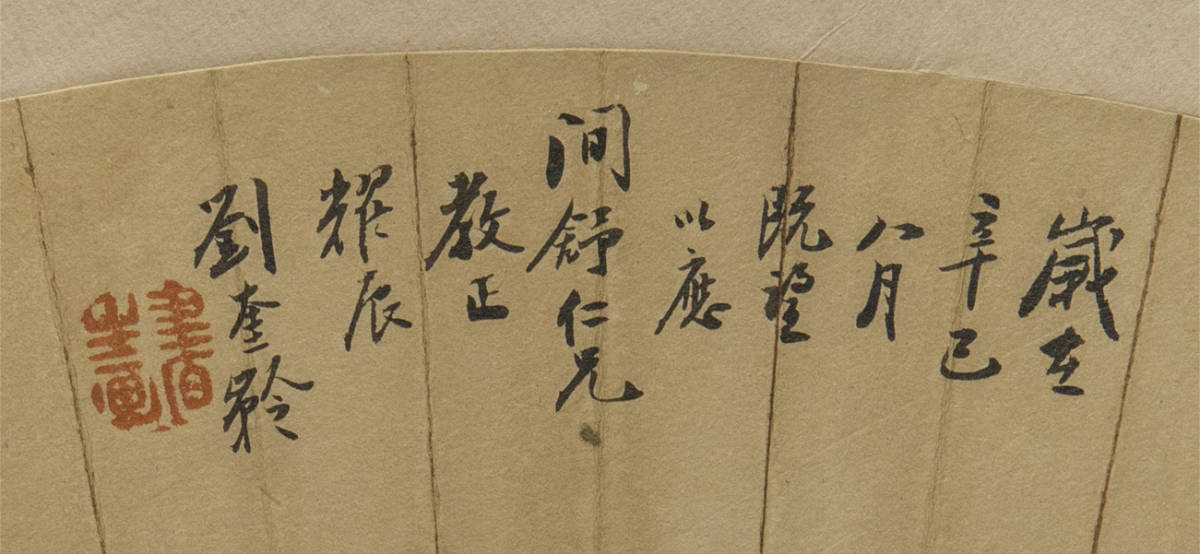 歲在
辛巳
八月
既望
以應
間舒仁兄
教正
耀辰
劉奎齡